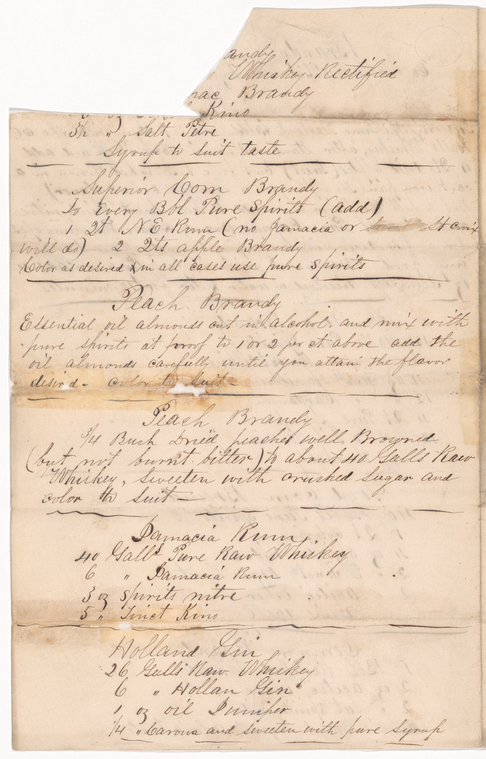 andy
Whiskey Rectified
nac Brandy
Kino
" Salt Petre
Syrup to suit taste
Superior Corn Brandy
to Every Bbl Pure Spirits (add)
1 2t N E Rum (no Jamacia or St Croix
will do) 2 2ts apple Brandy
Color as desired & in all cases use pure spirits
Peach Brandy
Essential oil almonds cut in alcohol and mix with
pure spirits at proof to 1 or 2 per ct above add the
oil almonds carefully until you attain the flavor
desired - Color to suit -
Peach Brandy
3/4 Bush Dried peaches well Browned
(but not burnt bitter) to about 40 Galls Raw
Whiskey, sweeten with crushed sugar and
color to suit -
Jamacia Rum
40 Galls Pure Raw Whiskey
6 " Jamacia Rum
3 oz Spirits nitre
5 " Tinct Kino
Holland Gin
26 Galls Raw Whiskey
6 " Hollan Gin
1 oz oil Juniper
1/4 " Carova and sweeten with pure syrup